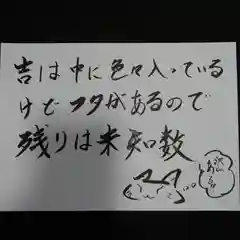 吉は中に色々入っている
けどフタがあるので
残りは未知数
沢山
あるよ